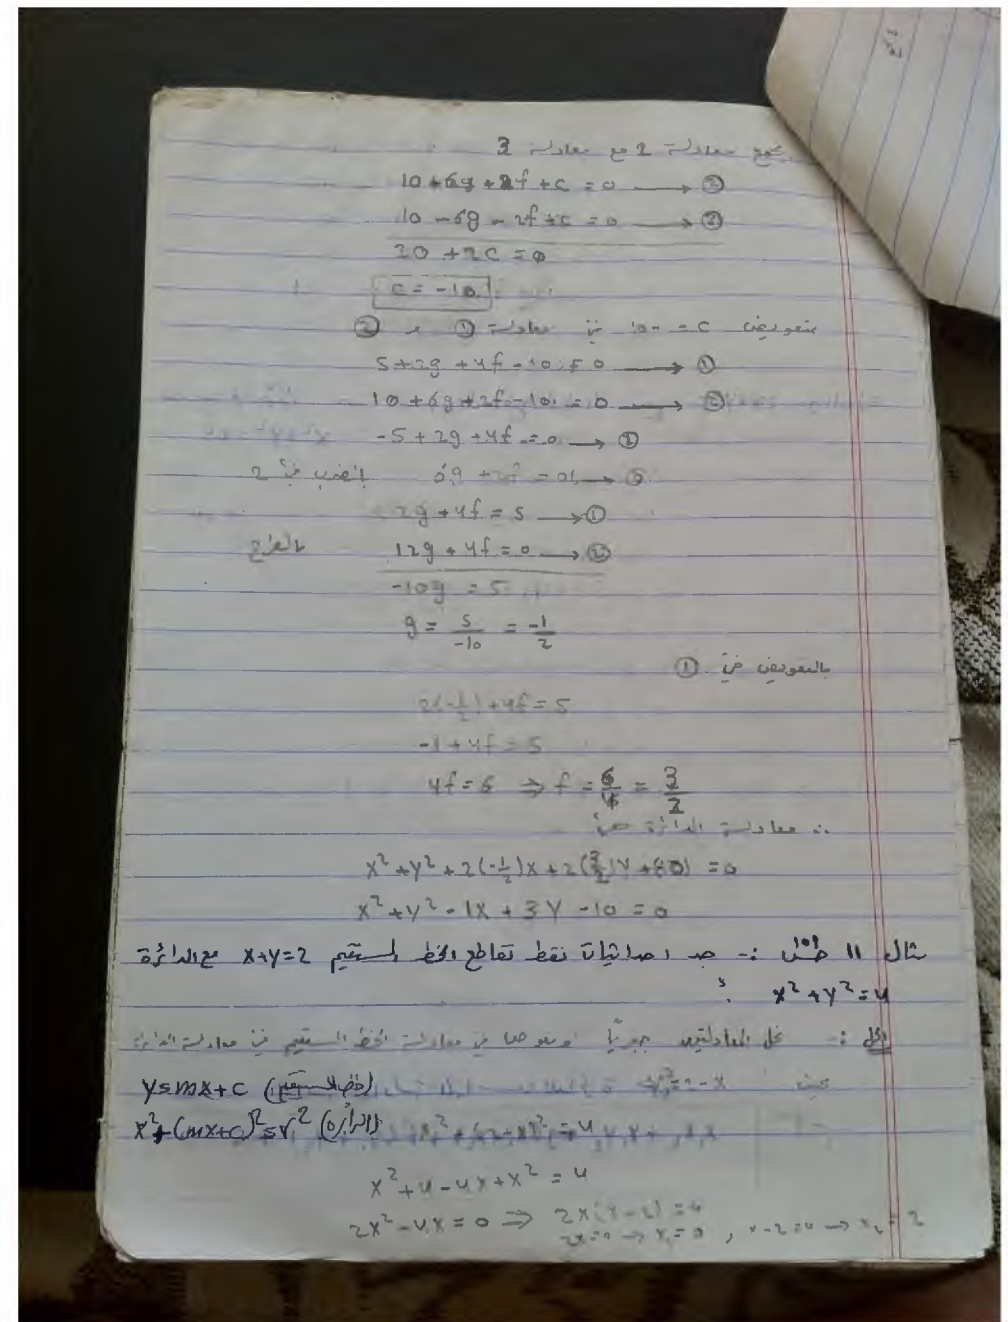 بجمع معادلة 2 مع معادلة 3
10 + 6g + 2f + c = 0 → ②
10 - 6g - 2f + c = 0 → ③
20 + 2c = 0
c = -10
بتعويض c = -10 في معادلة ① و ②
5 + 2g + 4f - 10 = 0 → ①
10 + 6g + 2f - 10 = 0 → ②
-5 + 2g + 4f = 0 → ①
6g + 2f = 0 → ② بالضرب في 2
2g + 4f = 5 → ①
12g + 4f = 0 → ② بالطرح
-10g = 5
g = 5/-10 = -1/2
بالتعويض في ①
2(-1/2) + 4f = 5
-1 + 4f = 5
4f = 6 ⇒ f = 6/4 = 3/2
∴ معادلة الدائرة هي
x² + y² + 2(-1/2)x + 2(3/2)y + (-10) = 0
x² + y² - 1x + 3y - 10 = 0
مثال 11 :- جد احداثيات نقط تقاطع الخط المستقيم x+y=2 مع الدائرة
x² + y² = 4 ؟
الحل :- نحل المعادلتين جبريًا ونعوض في معادلة الخط المستقيم في معادلة الدائرة
y = 2 - x
y = mx + c (خط المستقيم)
x² + (mx+c)² = r² (الدائرة)
x² + (2-x)² = 4
x² + 4 - 4x + x² = 4
2x² - 4x = 0 ⇒ 2x(x-2) = 0
2x=0 → x₁=0 , x-2=0 → x₂=2